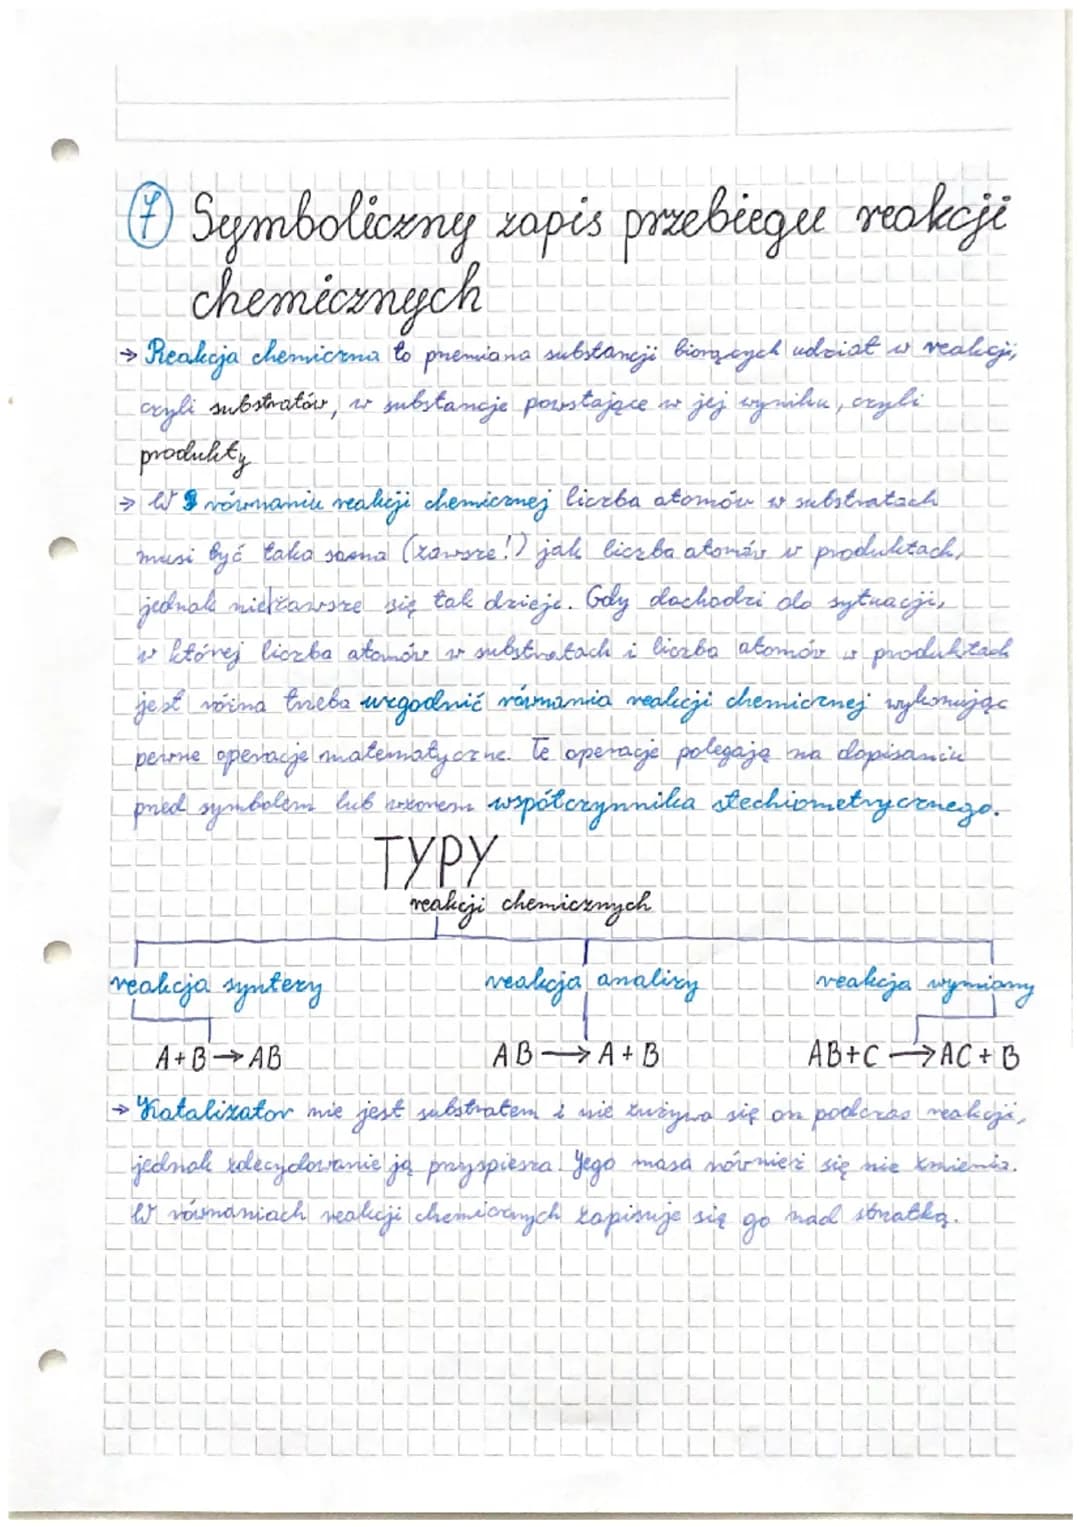 7 Symboliczny zapis przebiegu reakcji
chemicznych
→ Reakcja chemiczna to przemiana substancji biorących udział w reakcji,
czyli substratów, w substancje powstające w jej wyniku, czyli
produkty
→ W równaniu reakcji chemicznej liczba atomów w substratach
musi być taka sama (zawsze!) jak liczba atomów w produktach,
jednak nie zawsze się tak dzieje. Gdy dochodzi do sytuacji,
w której liczba atomów w substratach i liczba atomów w produktach
jest różna trzeba uzgodnić równania reakcji chemicznej wykonując
pewne operacje matematyczne. Te operacje polegają na dopisaniu
przed symbolem lub wzorem współczynnika stechiometrycznego.
TYPY
reakcji chemicznych
reakcja syntezy reakcja analizy reakcja wymiany
A+B → AB AB → A+B AB+C → AC+B
→ Katalizator nie jest substratem i nie zużywa się on podczas reakcji,
jednak zdecydowanie ją przyspiesza. Jego masa również się nie zmienia.
W równaniach reakcji chemicznych zapisuje się go nad strzałką.